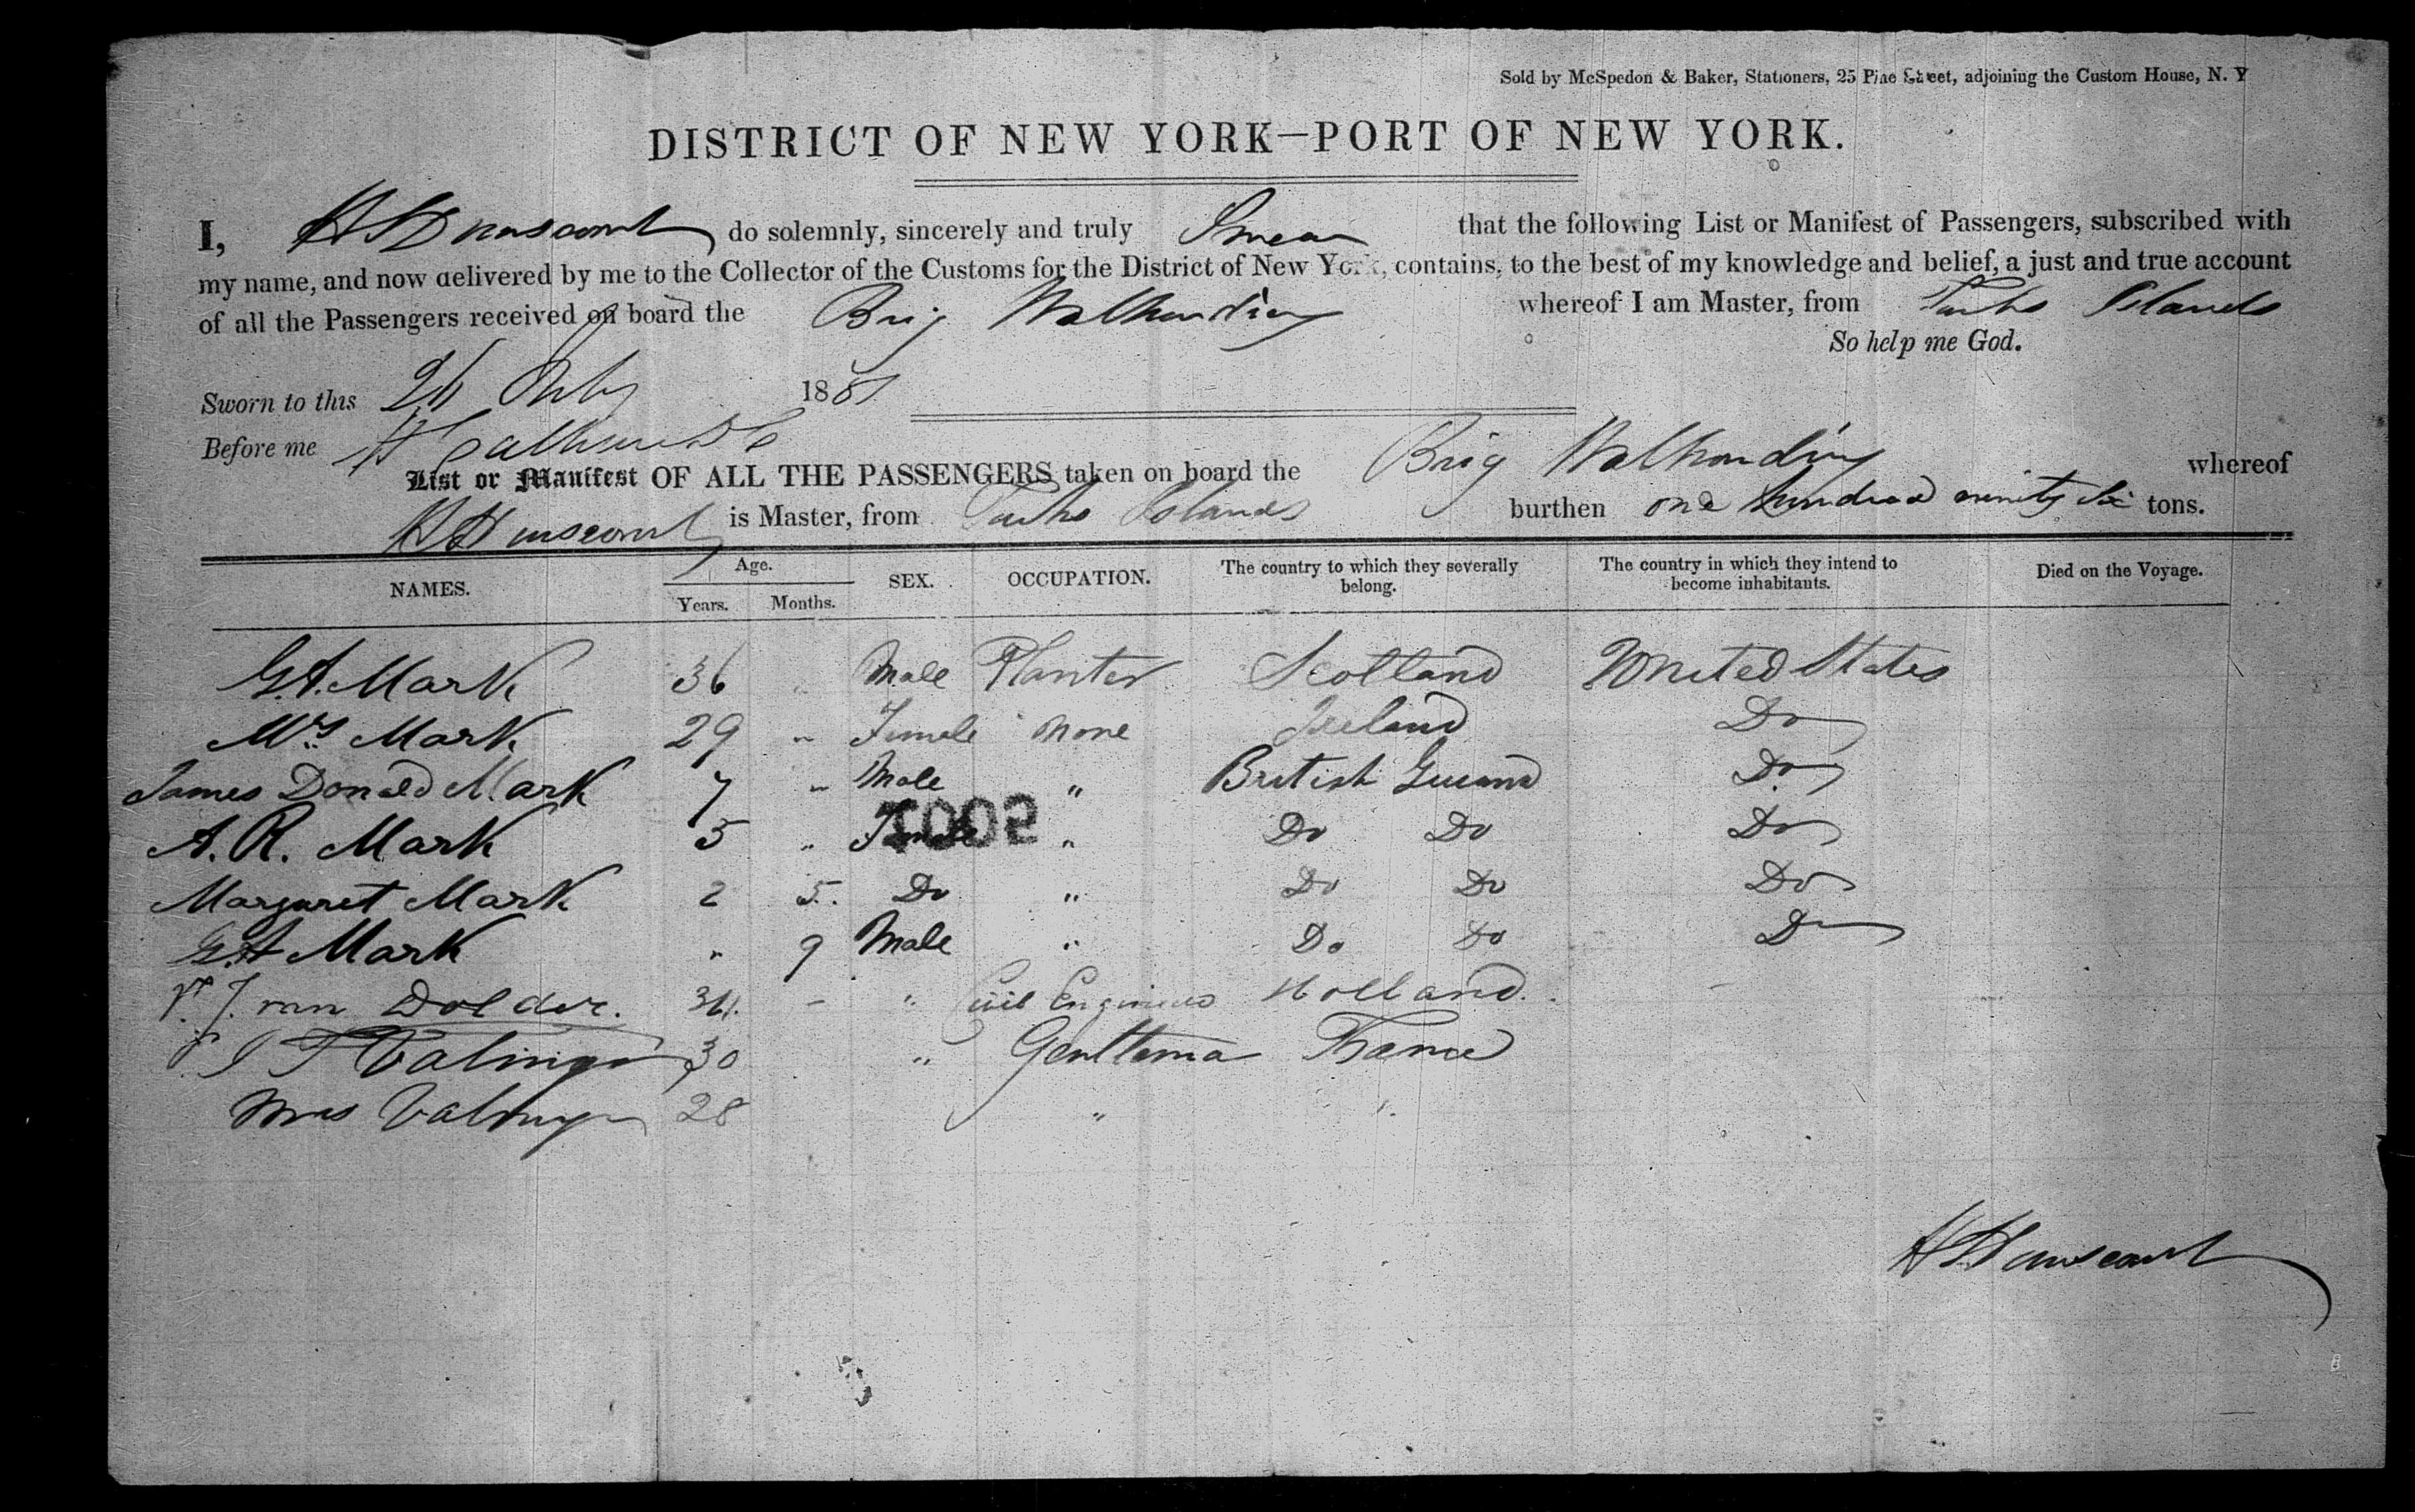 Sold by McSpedon & Baker, Stationers, 25 Pine Street, adjoining the Custom House, N. Y
DISTRICT OF NEW YORK—PORT OF NEW YORK.
I, do solemnly, sincerely and truly Swear that the following List or Manifest of Passengers, subscribed with
my name, and now delivered by me to the Collector of the Customs for the District of New York, contains, to the best of my knowledge and belief, a just and true account
of all the Passengers received on board the Brig Walhonding whereof I am Master, from Turks Islands
So help me God.
Sworn to this July 18
Before me
List or Manifest OF ALL THE PASSENGERS taken on board the Brig Walhonding whereof
is Master, from Turks Islands burthen one hundred ninety six tons.
NAMES. Age. Years. Months. SEX. OCCUPATION. The country to which they severally belong. The country in which they intend to become inhabitants. Died on the Voyage.
G.A. Mark 36 " Male Planter Scotland United States
Mrs Mark 29 " Female None Ireland Do
James Donald Mark 7 " Male " British Guiana Do
A. R. Mark 5 " Female " Do Do Do
Margaret Mark 2 5 Do " Do Do Do
G.A Mark " 9 Male " Do Do Do
van Dolder. 34 - " Civil Engineer Holland. -
30 " Gentleman France
Mrs 28 " "
5002